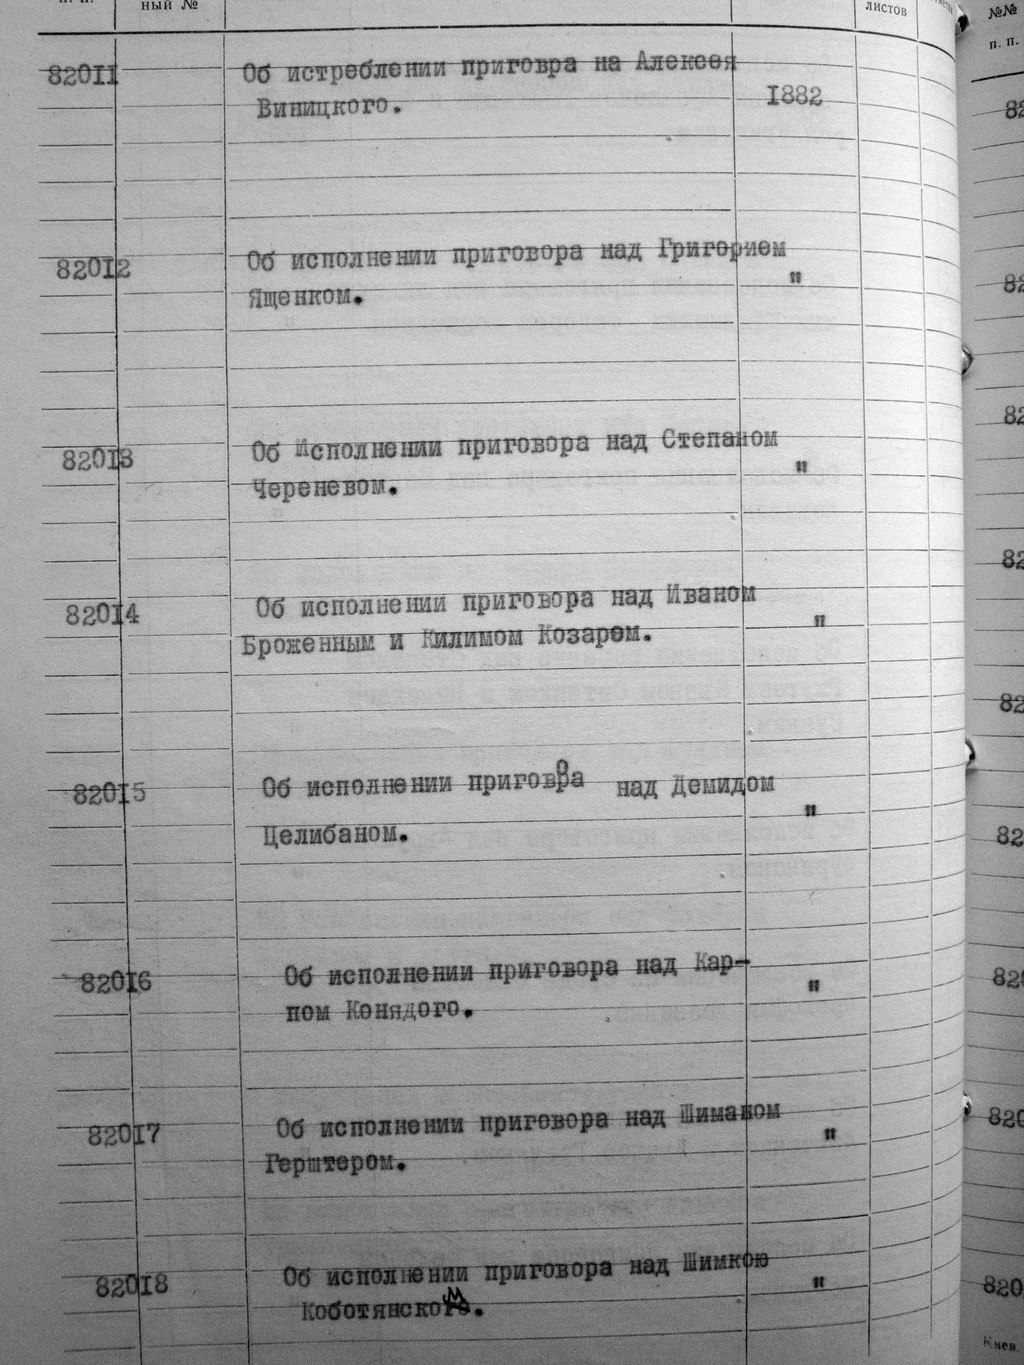 п. п.
ный №
листов
82011 Об истреблении приговра на Алексея
Виницкого. 1882
82012 Об исполнении приговора над Григорием
Ященком. "
82013 Об Исполнении приговора над Степаном
Череневом. "
82014 Об исполнении приговора над Иваном
Броженным и Килимом Козаром. "
82015 Об исполнении приговра над Демидом
о
Целибаном. "
82016 Об исполнении приговора над Кар-
пом Конядого. "
82017 Об исполнении приговора над Шиманом
Герштером. "
82018 Об исполнении приговора над Шимкою
Коботянском. "
№№
п. п.
82
82
82
82
82
82
820
820
820